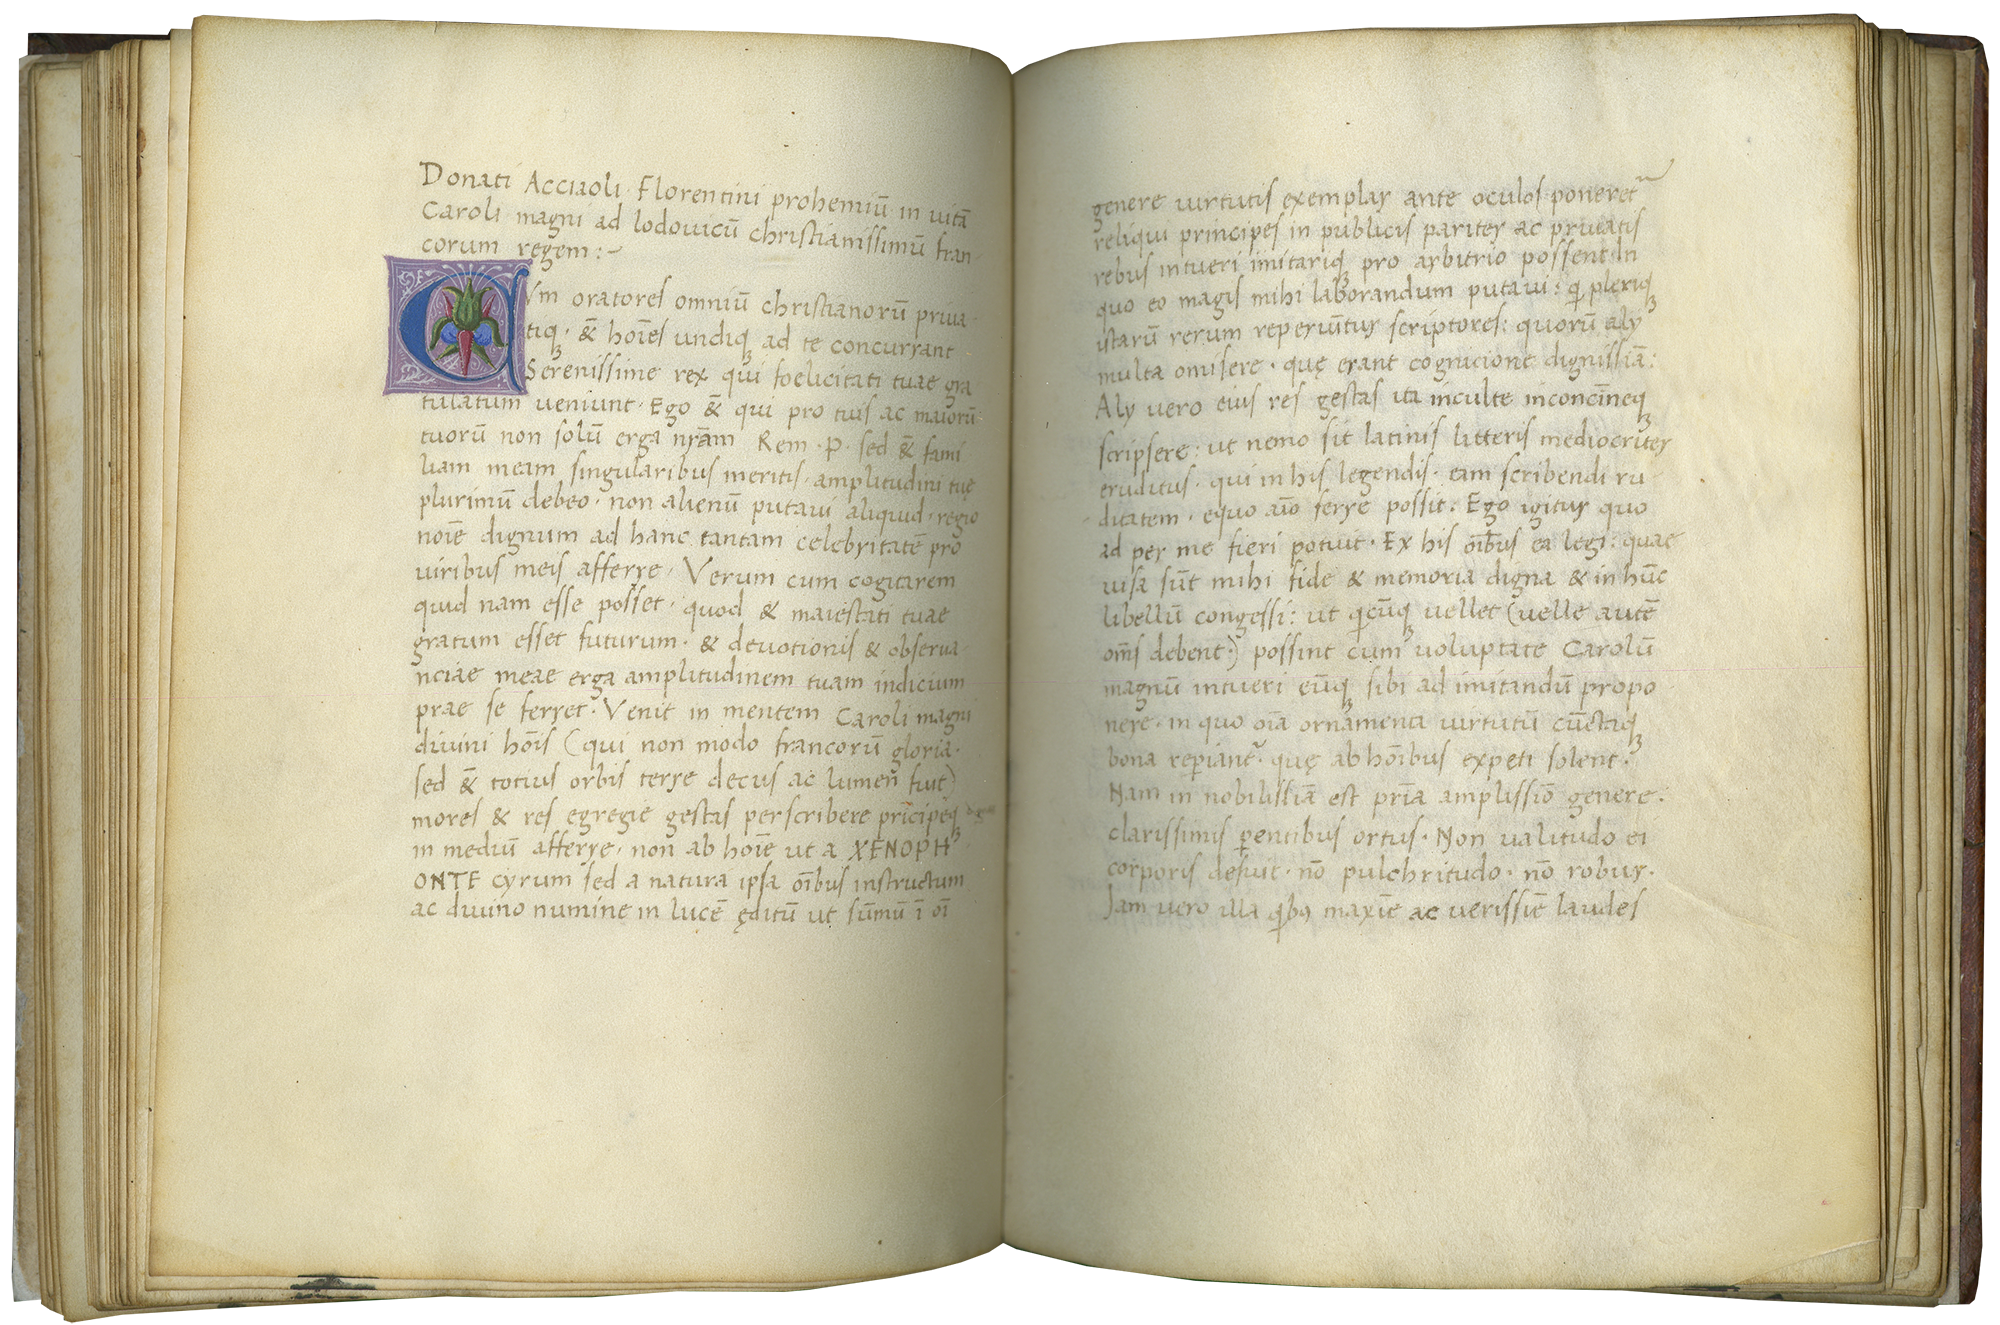 Donati Acciaoli Florentini prohemiū in uitā
Caroli magni ad lodouicū christianissimū fran
corum regem:~
CVm oratores omniū christianorū priua
tiq;· & hoīes undiq; ad te concurrant
Serenissime rex qui foelicitati tuae gra
tulatum ueniunt· Ego & qui pro tuis ac maiorū
tuorū non solū erga nr̄am Rem·P· sed & fami
liam meam singularibus meritis· amplitudini tuę
plurimū debeo· non alienū putaui aliquid· regio
noīe dignum ad hanc tantam celebritatē pro
uiribus meis afferre· Verum cum cogitarem
quid nam esse posset· quod & maiestati tuae
gratum esset futurum· & deuotionis & obserua
nciae meae erga amplitudinem tuam indicium
prae se ferret· Venit in mentem Caroli magni
diuini hoīs (qui non modo francorū gloria·
sed & totius orbis terre decus ac lumen fuit)
mores & res egregie gestas perscribere prīcipēq;
in mediū afferre· non ab hoīe ut a XENOPH
ONTE cyrum sed a natura ipsa oībus instructum
ac diuino numine in lucē ęditū ut sūmū ī oī
genere uirtutis exemplar ante oculos poneret~
reliqui principes in publicis pariter ac priuatis
rebus intueri imitariq; pro arbitrio possent In
quo eo magis mihi laborandum putaui: qđ pleriq;
istarū rerum reperiūtur scriptores: quorū aly
multa omisere· quę erant cognicione dignissīa:
Aly uero eius res gestas ita inculte inconcīneq;
scripsere: ut nemo sit latinis litteris mediocriter
eruditus· qui in his legendis· eam scribendi ru
ditatem· equo aīo ferre possit: Ego igitur quo
ad per me fieri potuit· Ex his oībus ea legi: quae
uisa sūt mihi fide & memoria digna & in hūc
libellū congessi: ut qīcūq; uellet (uelle autē
om̄s debent·) possint cum uoluptate Carolū
magnū intueri eūq; sibi ad imitandū propo
nere· in quo oīa ornamenta uirtutū cūctaq;
bona reperiant~· quę ab hoībus expeti solent·
Nam in nobilissīa est prīa amplissīo genere·
clarissimis parentibus ortus· Non ualitudo ei
corporis defuit· nō pulchritudo· nō robur·
Iam uero illa qībꝰ maxīe ac uerissīe laudes